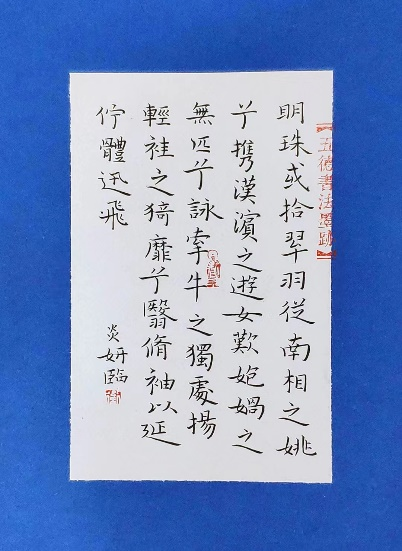 【五德書法墨跡】
明珠或拾翠羽從南相之姚
兮携漢濱之遊女歎媧之
無匹兮詠牽牛之獨處揚
輕袿之猗靡兮翳脩袖以延
佇體迅飛
炎妍臨